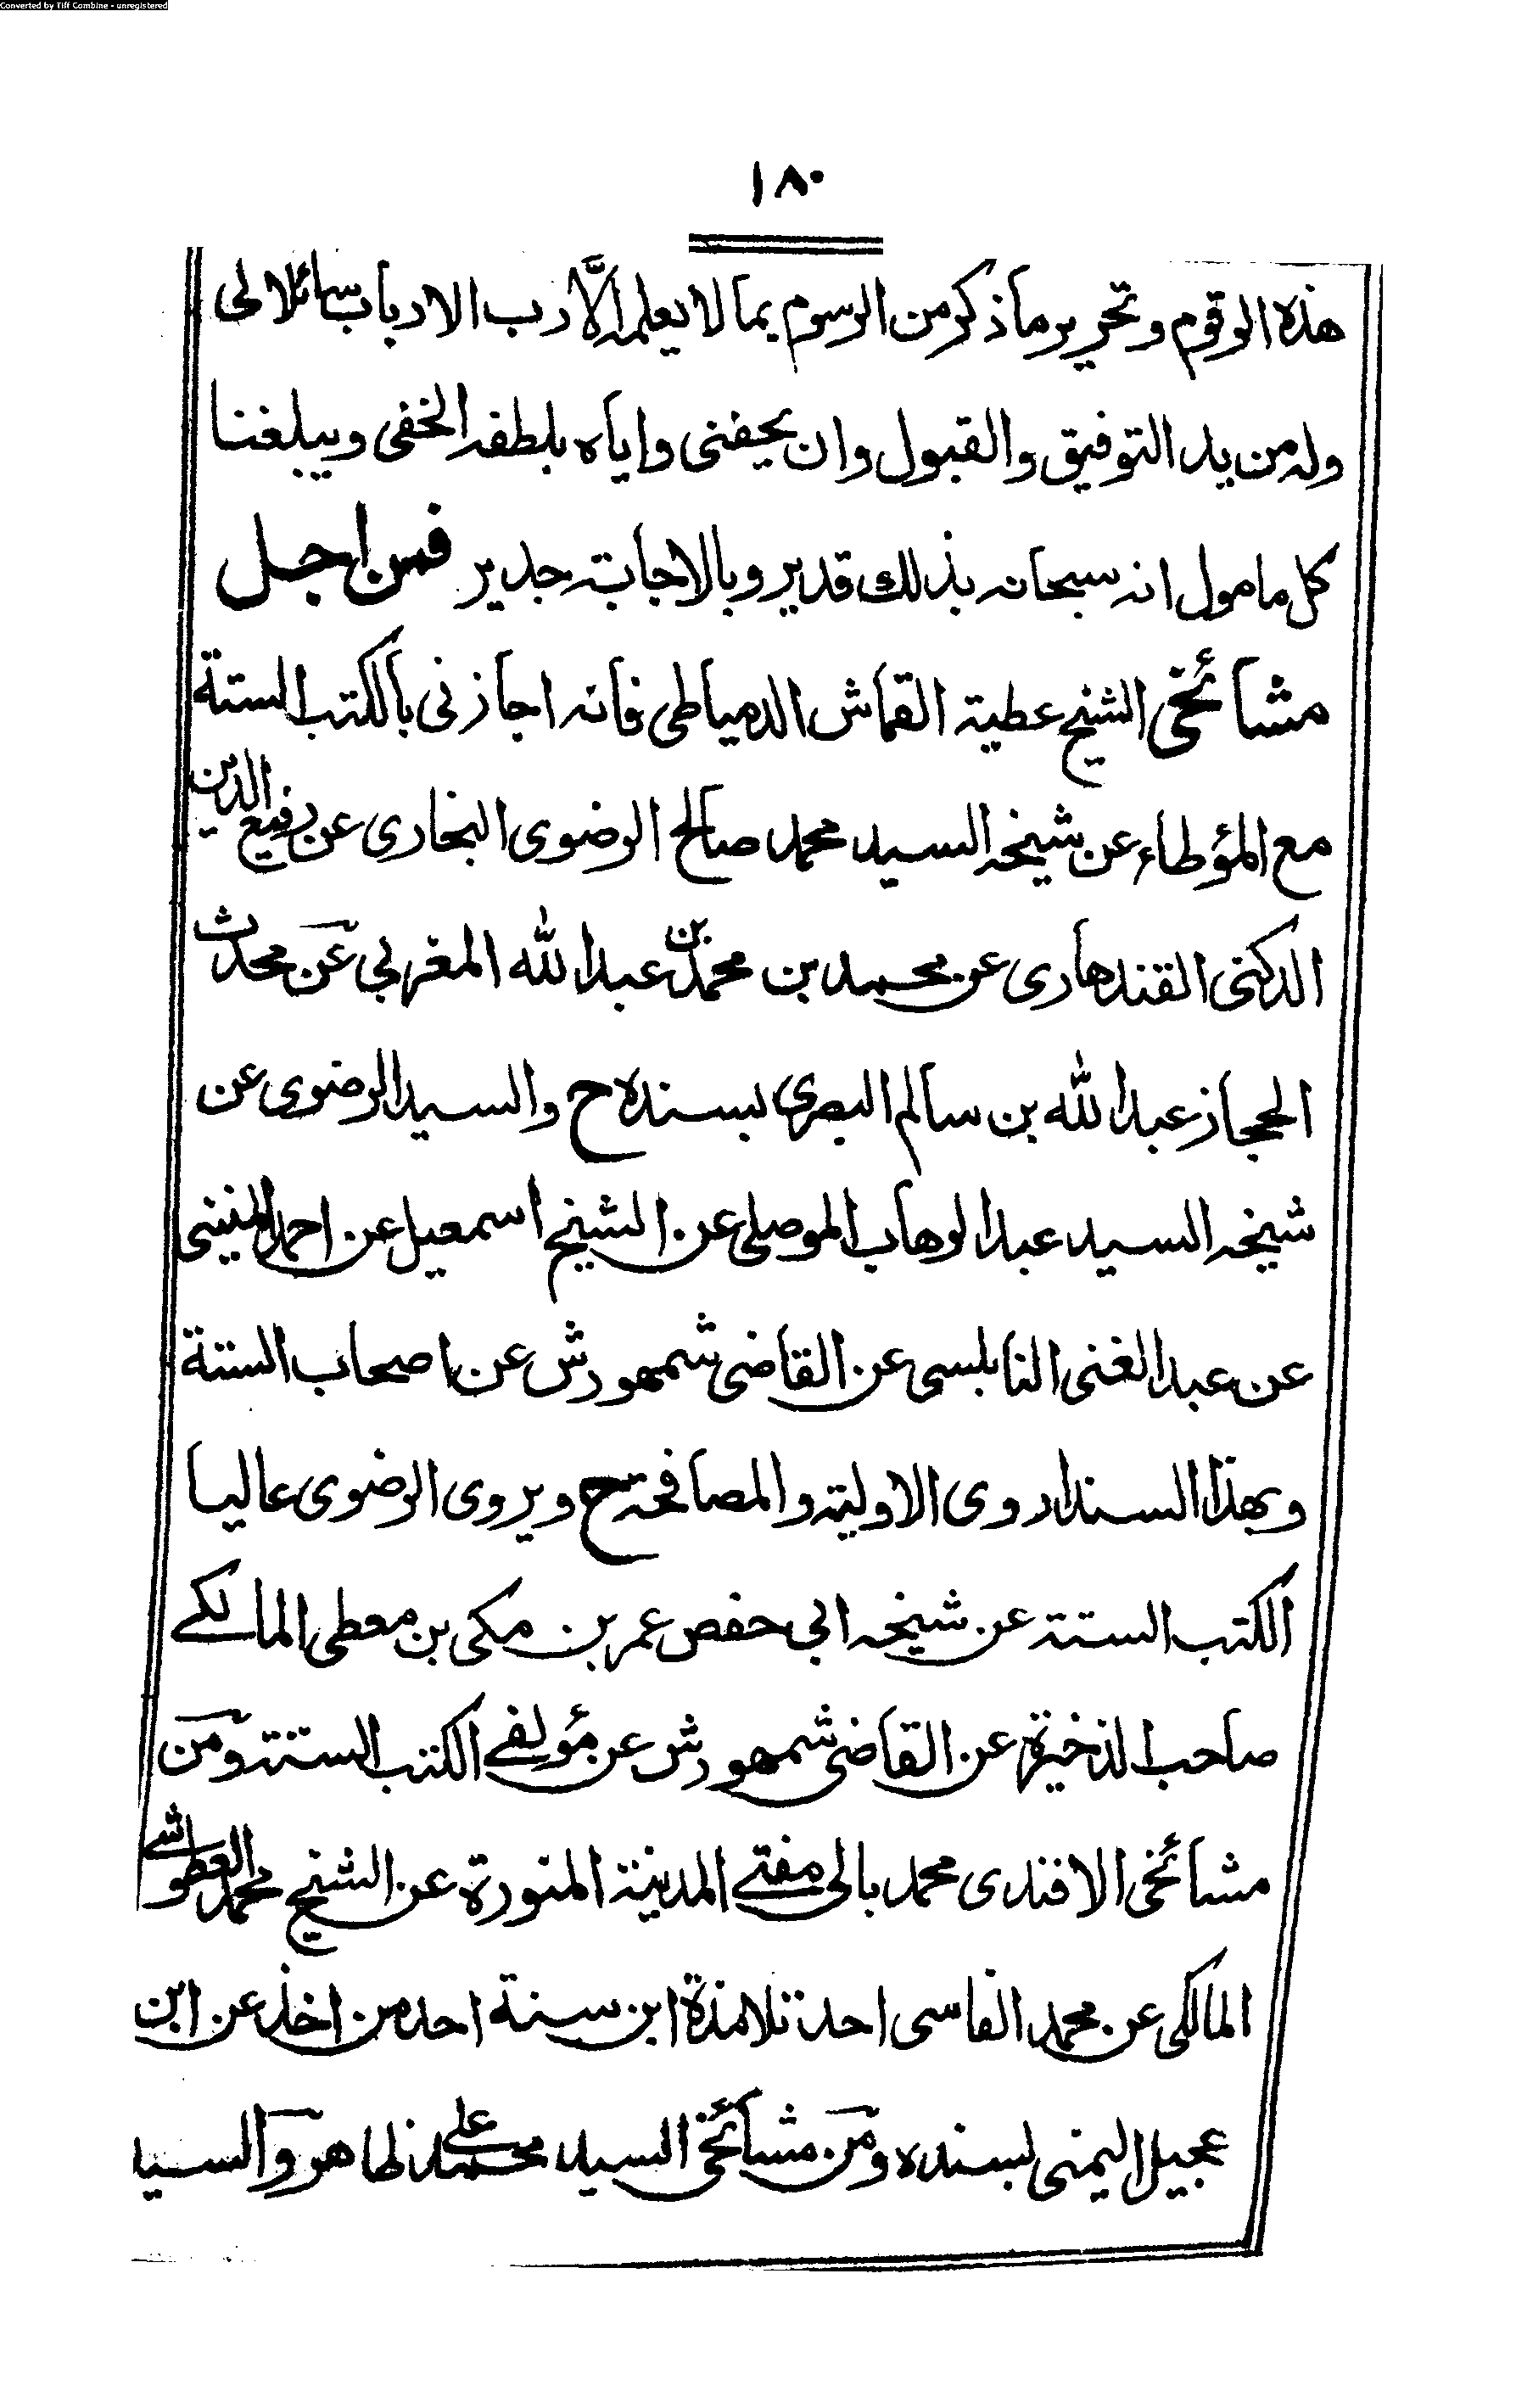 Converted by Tiff Combine - unregistered
١٨٠
هذه الرقوم وتحرير ما ذكر من الرسوم بما لا يعلمه الّا رب الارباب سائلا لى
وله من يد التوفيق والقبول وان يحفنى واياه بلطفه الخفى ويبلغنا
كل مامول انه سبحانه بذلك قدير وبالاجابة جدير فمن اجل
مشائخى الشيخ عطية القماش الدمياطى فانه اجازنى بالكتب الستة
مع المؤطاء عن شيخه السيد محمد صالح الرضوى البخارى عن رفيع الدين
الدكنى القندهارى عن محمد بن محمد بن عبد الله المغربى عن محدث
الحجاز عبد الله بن سالم البصرى بسنده ح والسيد الرضوى عن
شيخه السيد عبد الوهاب الموصلى عن الشيخ اسمعيل عن احمد المنينى
عن عبد الغنى النابلسى عن القاضى شمهورش عن اصحاب الستة
وبهذا السند اروى الاولية والمصافحة ح ويروى الرضوى عاليا
الكتب الستة عن شيخه ابى حفص عمر بن مكى بن معطى المالكے
صاحب الذخيرة عن القاضى شمهورش عن مؤلفے الكتب الستة ومن
مشائخى الافندى محمد بالى مفتے المدينة المنورة عن الشيخ محمد العطوشے
المالكى عن محمد الفاسى احد تلامذة ابن سنة احد من اخذ عن ابن
عجيل اليمنى بسنده ومن مشائخى السيد محمد على ظاهر والسيد